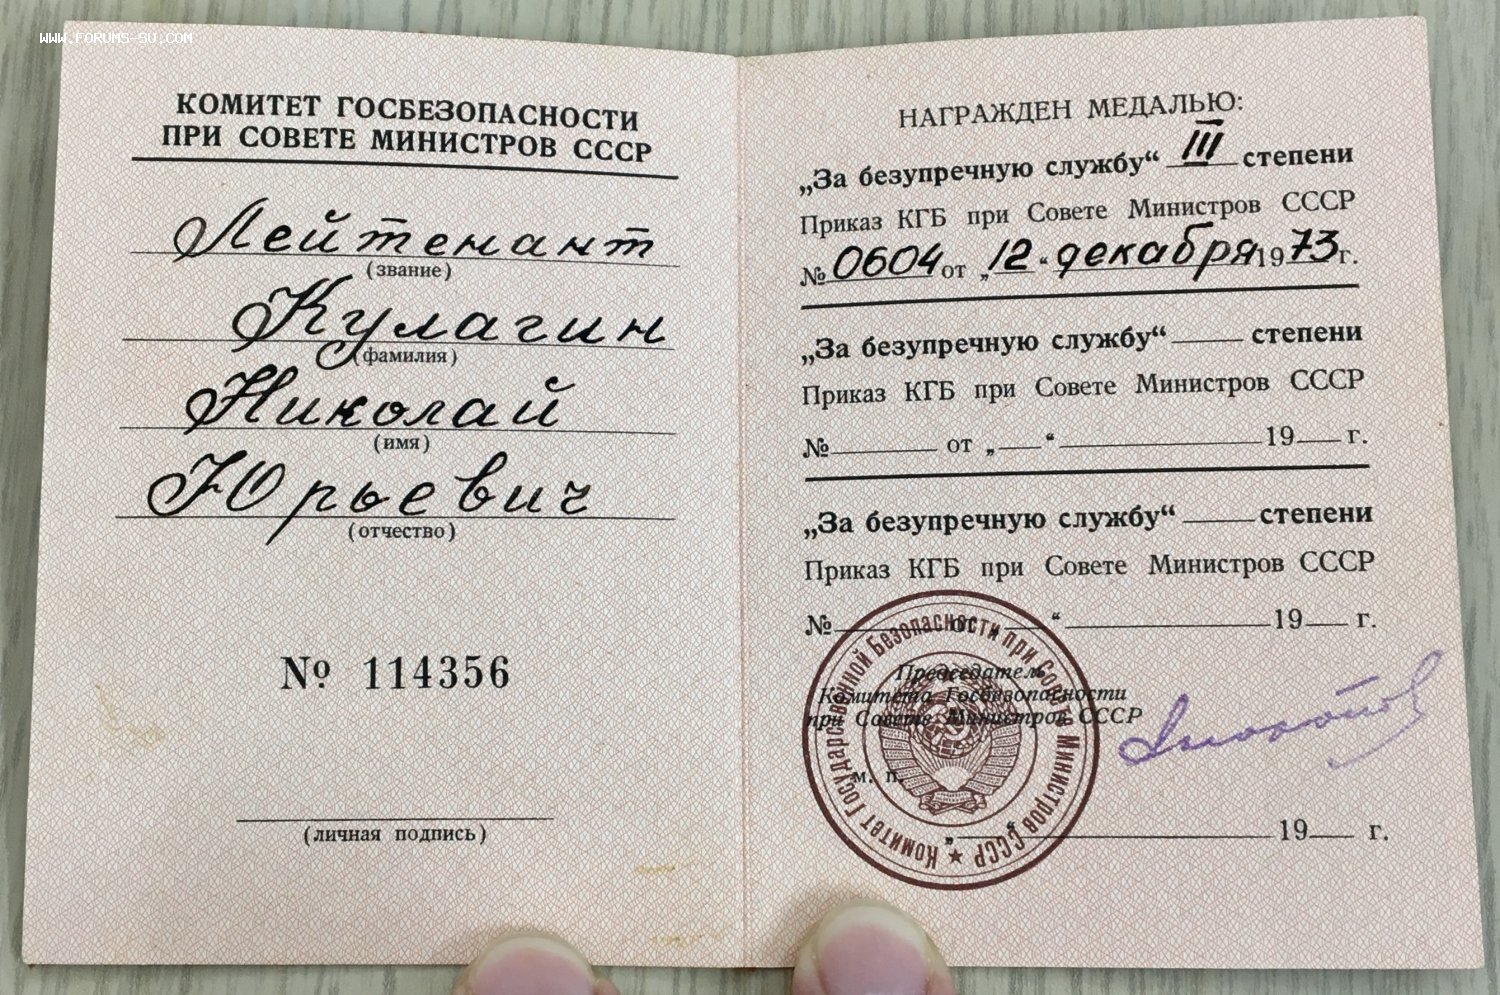 WWW.FORUMS-SU.COM
КОМИТЕТ ГОСБЕЗОПАСНОСТИ
ПРИ СОВЕТЕ МИНИСТРОВ СССР
Лейтенант
(звание)
Кулагин
(фамилия)
Николай
(имя)
Юрьевич
(отчество)
№ 114356
(личная подпись)
НАГРАЖДЕН МЕДАЛЬЮ:
„За безупречную службу“ III степени
Приказ КГБ при Совете Министров СССР
№ 0604 от „12“ декабря 1973г.
„За безупречную службу“ степени
Приказ КГБ при Совете Министров СССР
№ от „ “ 19 г.
„За безупречную службу“ степени
Приказ КГБ при Совете Министров СССР
№ от „ “ 19 г.
Председатель
Комитета Госбезопасности
при Совете Министров СССР
м. п.
„ “ 19 г.
Комитет Государственной Безопасности при Совете Министров СССР